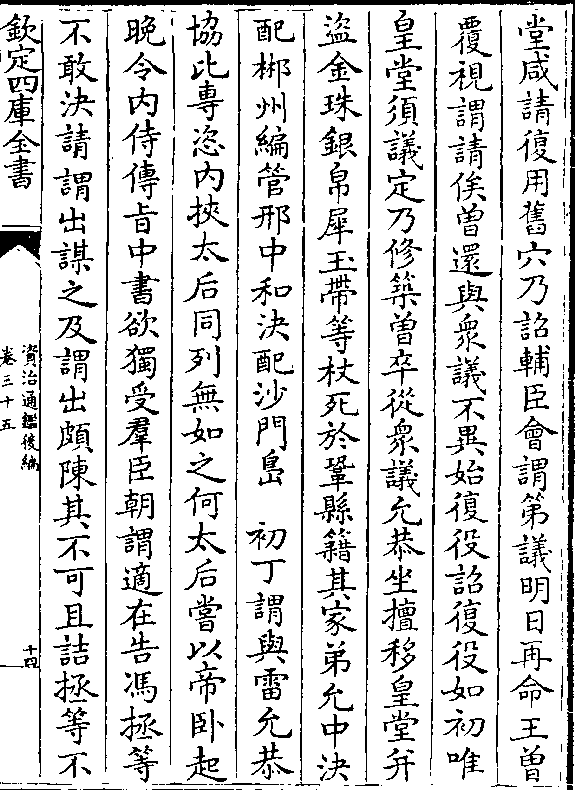 堂咸請復用舊穴乃詔輔臣會謂第議明日再命王曽
覆視謂請俟曽還與衆議不異始復役詔復役如初唯
皇堂須議定乃修築曽卒從衆議允恭坐擅移皇堂并
盜金珠銀帛犀玉帶等杖死於鞏縣籍其家弟允中決
配郴州編管邢中和決配沙門島　初丁謂與雷允恭
協比專恣内挾太后同列無如之何太后嘗以帝卧起
晚令内侍傳旨中書欲獨受羣臣朝謂適在告馮拯等
不敢決請謂出謀之及謂出頗陳其不可且詰拯等不
欽定四庫全書
資治通鑑後編
卷三十五
十四